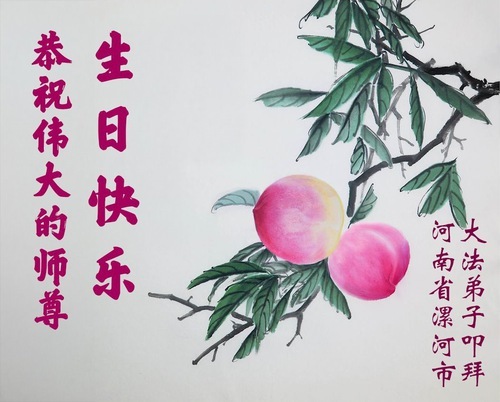 恭祝伟大的师尊
生日快乐
河南省漯河市
大法弟子叩拜